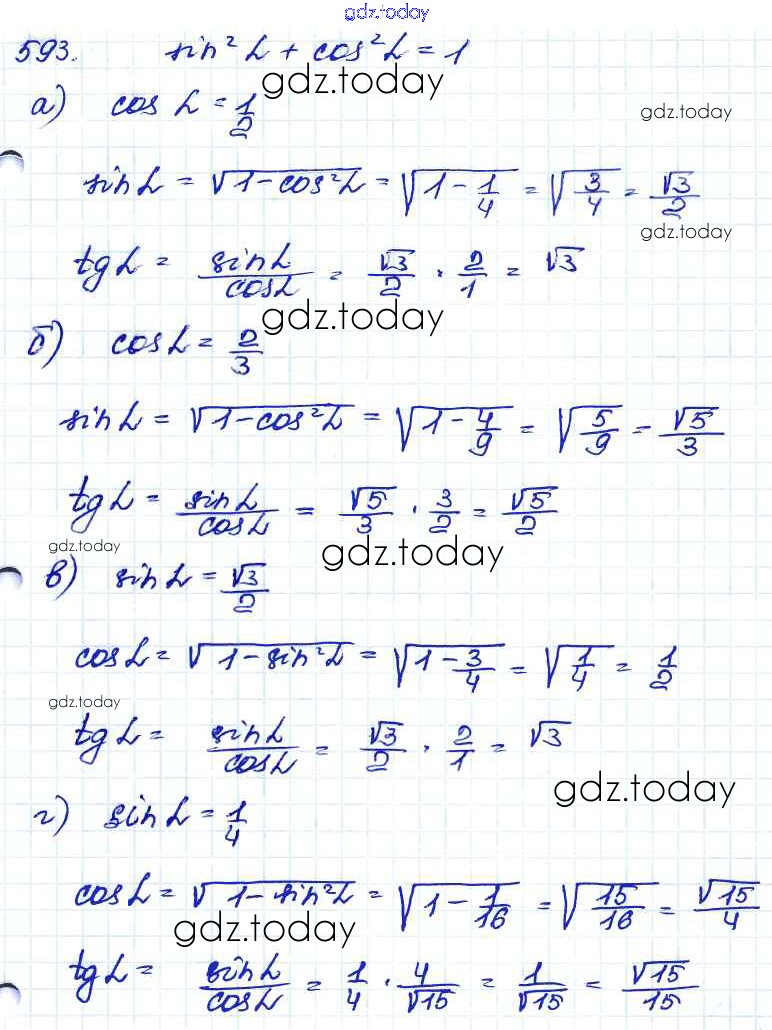 gdz.today
593. sin² α + cos² α = 1
gdz.today
а) cos α = 1/2
gdz.today
sin α = √(1 - cos² α) = √(1 - 1/4) = √(3/4) = √3/2
gdz.today
tg α = sin α/cos α = √3/2 · 2/1 = √3
gdz.today
б) cos α = 2/3
sin α = √(1 - cos² α) = √(1 - 4/9) = √(5/9) = √5/3
tg α = sin α/cos α = √5/3 · 3/2 = √5/2
gdz.today
gdz.today
в) sin α = √3/2
cos α = √(1 - sin² α) = √(1 - 3/4) = √(1/4) = 1/2
gdz.today
tg α = sin α/cos α = √3/2 · 2/1 = √3
gdz.today
г) sin α = 1/4
cos α = √(1 - sin² α) = √(1 - 1/16) = √(15/16) = √15/4
gdz.today
tg α = sin α/cos α = 1/4 · 4/√15 = 1/√15 = √15/15